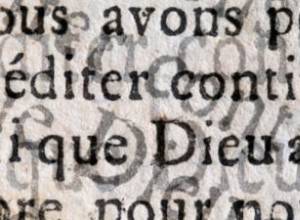 ous avons p
éditer conti
i que Dieu a
ore pour no